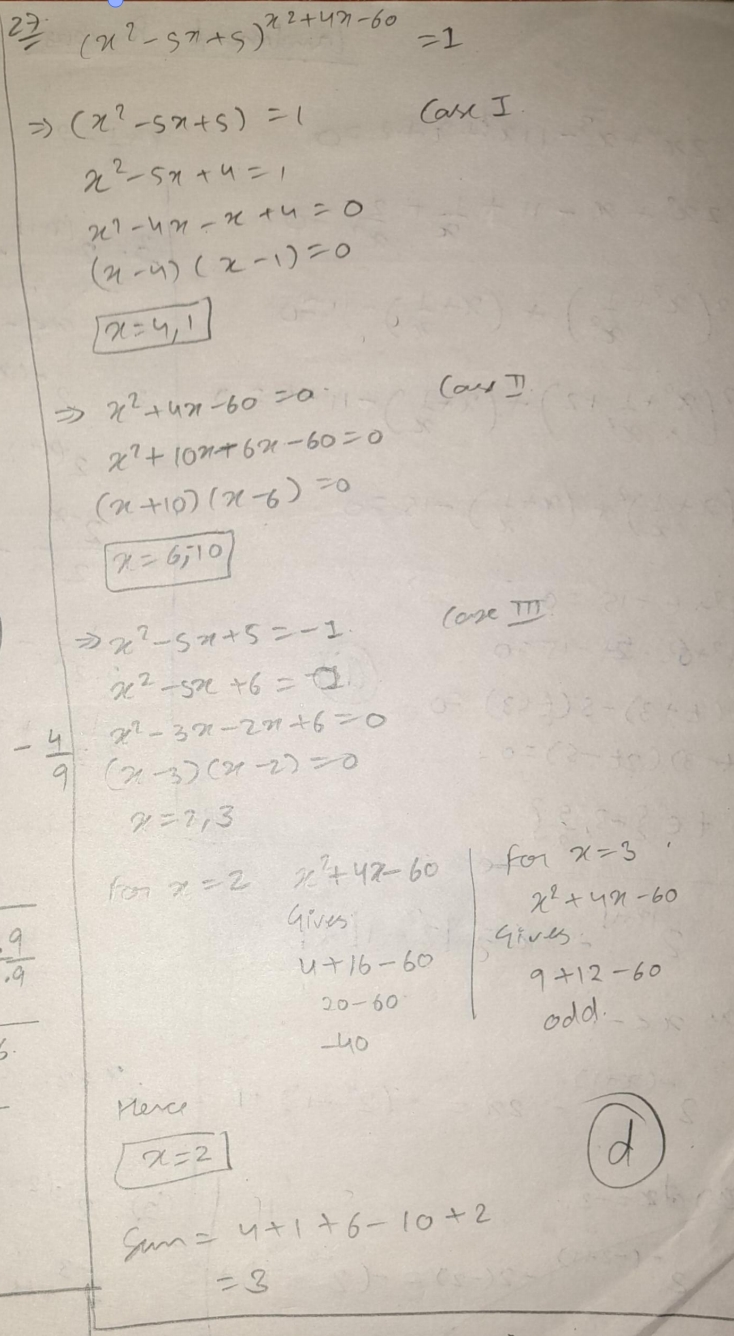 27. (x²-5x+5)^(x²+4x-60) =1
⇒ (x²-5x+5) = 1 Case I
x²-5x+4=1
x²-4x-x+4=0
(x-4)(x-1)=0
x=4,1
⇒ x²+4x-60=0 Case II
x²+10x+6x-60=0
(x+10)(x-6)=0
x=6,-10
⇒ x²-5x+5=-1 Case III
x²-5x+6=
x²-3x-2x+6=0
-4/9
(x-3)(x-2)=0
x=2,3
for x=2 x²+4x-60
Gives
4+16-60
20-60
-40
for x=3
x²+4x-60
Gives
9+12-60
odd.
.9
.9
Hence
x=2
d
Sum= 4+1+6-10+2
=3